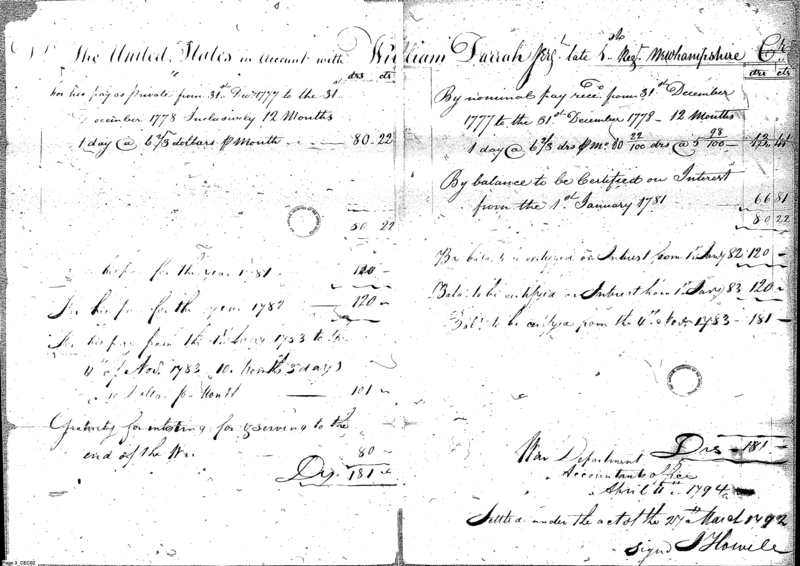 The United States in Account with William Darrah Serg.t late 5th Reg.t Newhampshire Cr.
drs cts
for his pay as Private from 31st Dec.r 1777 to the 31
December 1778 Inclusively 12 Months
1 day @ 6 2/3 dollars p Month 80.22
80 22
his pay for the year 1781 120
his pay for the year 1782 120
his pay from the 1st Jany 1783 to the
4th of Nov.r 1783 10 Months 3 days
10 Dollars p Month 101
Gratuity for enlisting for & serving to the
end of the War 80
Drs. 181
drs cts
By nominal pay rec.d from 31st December
1777 to the 31st December 1778 - 12 Months
1 day @ 6 2/3 drs p Mo. 80 22/100 drs @ 5 98/100 - 13.41
By balance to be Certified on Interest
from the 1st January 1781 66 81
80 22
Bala. to be certifyed on Interest from 1st Jany 82 120 -
Bala. to be certifyed on Interest from 1st Jany 83 120
Bal. to be certifyed from the 4th Nov.r 1783 - 181 -
Drs 181
War Department
Accountants office
April 11th 1794
Settled under the act of the 27th March 1792
Signd J Howell
Page 3_CEC02